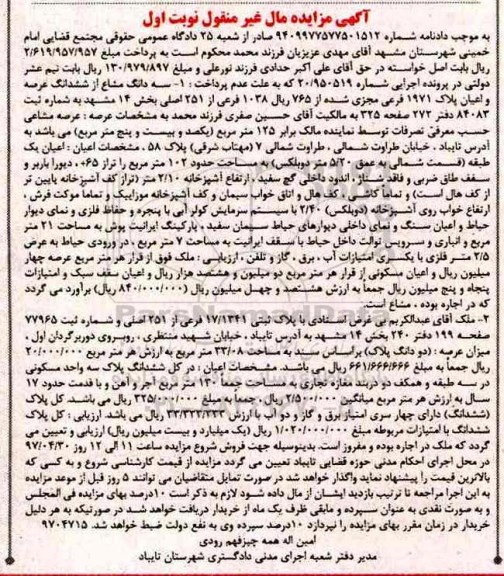 آگهی مزایده مال غیر منقول نوبت اول
به موجب دادنامه شماره 9409977577501512 صادر از شعبه 25 دادگاه عمومی حقوقی مجتمع قضایی امام
خمینی شهرستان مشهد آقای مهدی عزیزیان فرزند محمد محکوم است به پرداخت مبلغ 2/619/957/957
ریال بابت اصل خواسته در حق آقای علی اکبر حدادی فرزند نورعلی و مبلغ 130/979/897 ریال بابت نیم عشر
دولتی در پرونده اجرایی شماره 20/950519 که به علت عدم پرداخت : 1- سه دانگ مشاع از ششدانگ عرصه
و اعیان پلاک 1971 فرعی مجزی شده از 765 ریال 1038 فرعی از 251 اصلی بخش 14 مشهد به شماره ثبت
84083 دفتر 272 صفحه 325 به مالکیت آقای حسین صفری فرزند محمد به مشخصات عرصه : عرصه مشاعی
حسب معرفی تصرفات توسط نماینده مالک برابر 125 متر مربع (یکصد و بیست و پنج متر مربع) می باشد به
آدرس تایباد . خیابان طراوت شمالی . طراوت شمالی 7 (مهتاب شرقی) پلاک 58 . مشخصات اعیان : اعیان یک
طبقه (قسمت شمالی به عمق 5/20 متر دوبلکس) به مساحت حدود 102 متر مربع را تراز 65+ . دیورا باربر و
سقف طاق ضربی و فاقد شناژ . اندود داخلی گچ سفید . ارتفاع آشپزخانه 2/10 متر (تراز کف آشپزخانه پایین تر
از کف هال است) و تماماً کاشی . کف هال و اتاق خواب سیمان و کف آشپزخانه موزاییک و تماما موکت فرش .
ارتفاع خواب روی آشپزخانه (دوبلکس) 2/40 با سیستم سرمایش کولر آبی با پنجره و حفاظ فلزی و نمای دیوار
حیاط و اعیان سنگ و نمای داخلی دیوارهای حیاط سیمان سفید . پارکینگ ایرانیت پوش به مساحت 21 متر
مربع و انباری و سرویس توالت داخل حیاط با سقف ایرانیت به مساحت 7 متر مربع . در ورودی حیاط به عرض
2/5 متر فلزی با یکسری امتیازات آب . برق . گاز و تلفن . ارزیابی : ملک فوق از قرار هر متر مربع عرصه چهار
میلیون ریال و اعیان مسکونی از قرار هر متر مربع دو میلیون و هشتصد هزار ریال و اعیان سقف سبک و امتیازات
پنجاه و پنج میلیون ریال جمعاً به ارزش هشتصد و چهل میلیون ریال (840/000/000 ریال) برآورد می گردد
که در اجاره بوده . مشاع است.
2- ملک آقای عبدالکریم بی غرض استنادی با پلاک ثبتی 17/1341 فرعی از 251 اصلی و شماره ثبت 77965
صفحه 199 دفتر 240 بخش 14 مشهد به آدرس تایباد . خیابان شهید منتظری . روبروی دوربرگردان اول .
میزان عرصه : (دو دانگ پلاک) براساس سند به مساحت 33/08 متر مربع به ارزش هر متر مربع 20/000/000
ریال جمعاً به مبلغ 661/666/666 ریال می باشد. مشخصات اعیان : در کل ششدانگ پلاک سه واحد مسکونی
در سه طبقه و همکف دو دربند مغازه تجاری به مساحت جمعاً 130 متر مربع آجر و آهن و با قدمت حدود 17
سال به ارزش هر متر مربع میانگین 2/500/000 ریال جمعا به مبلغ 325/000/000 ریال می باشد. کل پلاک
(ششدانگ) دارای چهار سری امتیاز برق و گاز و دو آب با ارزش 33/333/333 ریال می باشد. ارزیابی : کل پلاک
ششدانگ با امتیازات مربوطه مبلغ 1/020/000/000 ریال (یک میلیارد و بیست میلیون ریال) ارزیابی و تعیین می
گردد که ملک در اجاره بوده و مفروز است. بدینوسیله جهت فروش شروع مزایده ساعت 11 الی 12 روز 97/04/30
در محل اجرای احکام مدنی حوزه قضایی تایباد تعیین می گردد مزایده از قیمت کارشناسی شروع و به کسی که
بالاترین قیمت را پیشنهاد نماید واگذار خواهد شد در صورت تمایل متقاضیان می توانند 5 روز قبل از موعد مزایده
به این اجرا مراجعه تا ترتیب بازدید ایشان از مال داده شود لازم به ذکر است 10درصد بهای مزایده فی المجلس
و به صورت نقدی به عنوان سپرده و مابقی ظرف یک ماه از خریدار دریافت خواهد شد در صورتیکه به هر دلیل
خریدار در زمان مقرر بهای مزایده را نپردازد 10درصد سپرده وی به نفع دولت ضبط خواهد شد. 9704715
امین اله همه چیزفهم رودی
مدیر دفتر شعبه اجرای مدنی دادگستری شهرستان تایباد